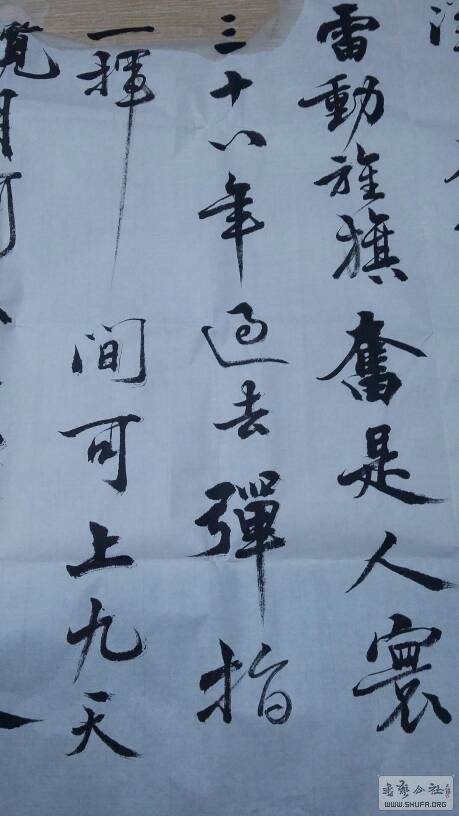 雷動旌旗奮是人寰
三十八年過去彈指
一揮間可上九天
月可
書法公社
WWW.SHUFA.ORG